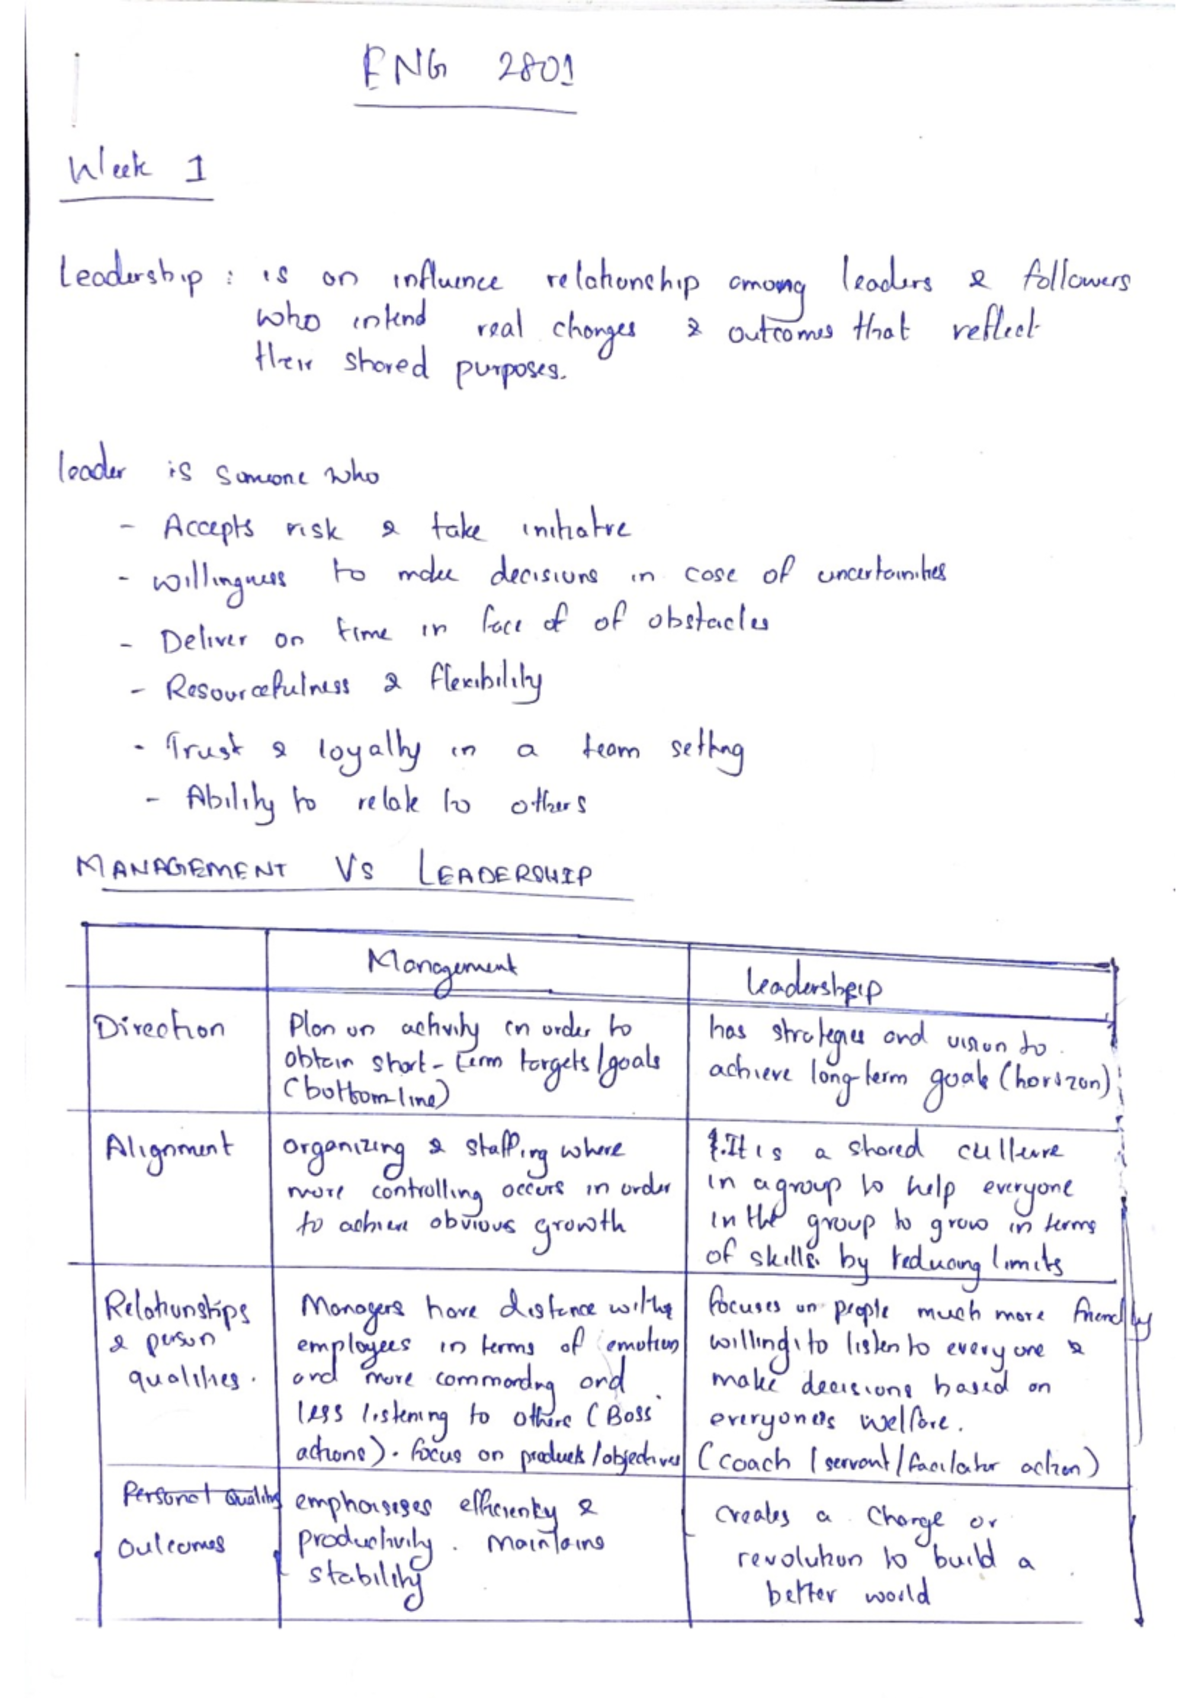 ENG 2801
Week 1
Leadership : is an influence relationship among leaders & followers
who intend real changes & outcomes that reflect
their shared purposes.
leader is someone who
- Accepts risk & take initiative
- willingness to make decisions in case of uncertainities
- Deliver on time in face of of obstacles
- Resourcefulness & flexibility
- Trust & loyalty in a team setting
- Ability to relate to others
MANAGEMENT VS LEADERSHIP
Management
Leadership
Direction
Plan on activity in order to
obtain short-term targets/goals
(bottom-line)
has strategies and vision to
achieve long-term goals (horizon)
Alignment
organizing & staffing where
more controlling occurs in order
to achieve obvious growth
It is a shared culture
in a group to help everyone
in the group to grow in terms
of skills. by reducing limits
Relationships
& person
qualities.
Managers have distance withe
employees in terms of emotion
and more commanding and
less listening to others (Boss
actions). focus on products/objectives
focuses on people much more friendly
willing to listen to everyone &
make decisions based on
everyone's welfare.
(coach / servant/facilator action)
Personal Quality
Outcomes
emphasises efficienky &
productivity. maintains
stability
Creates a change or
revolution to build a
better world